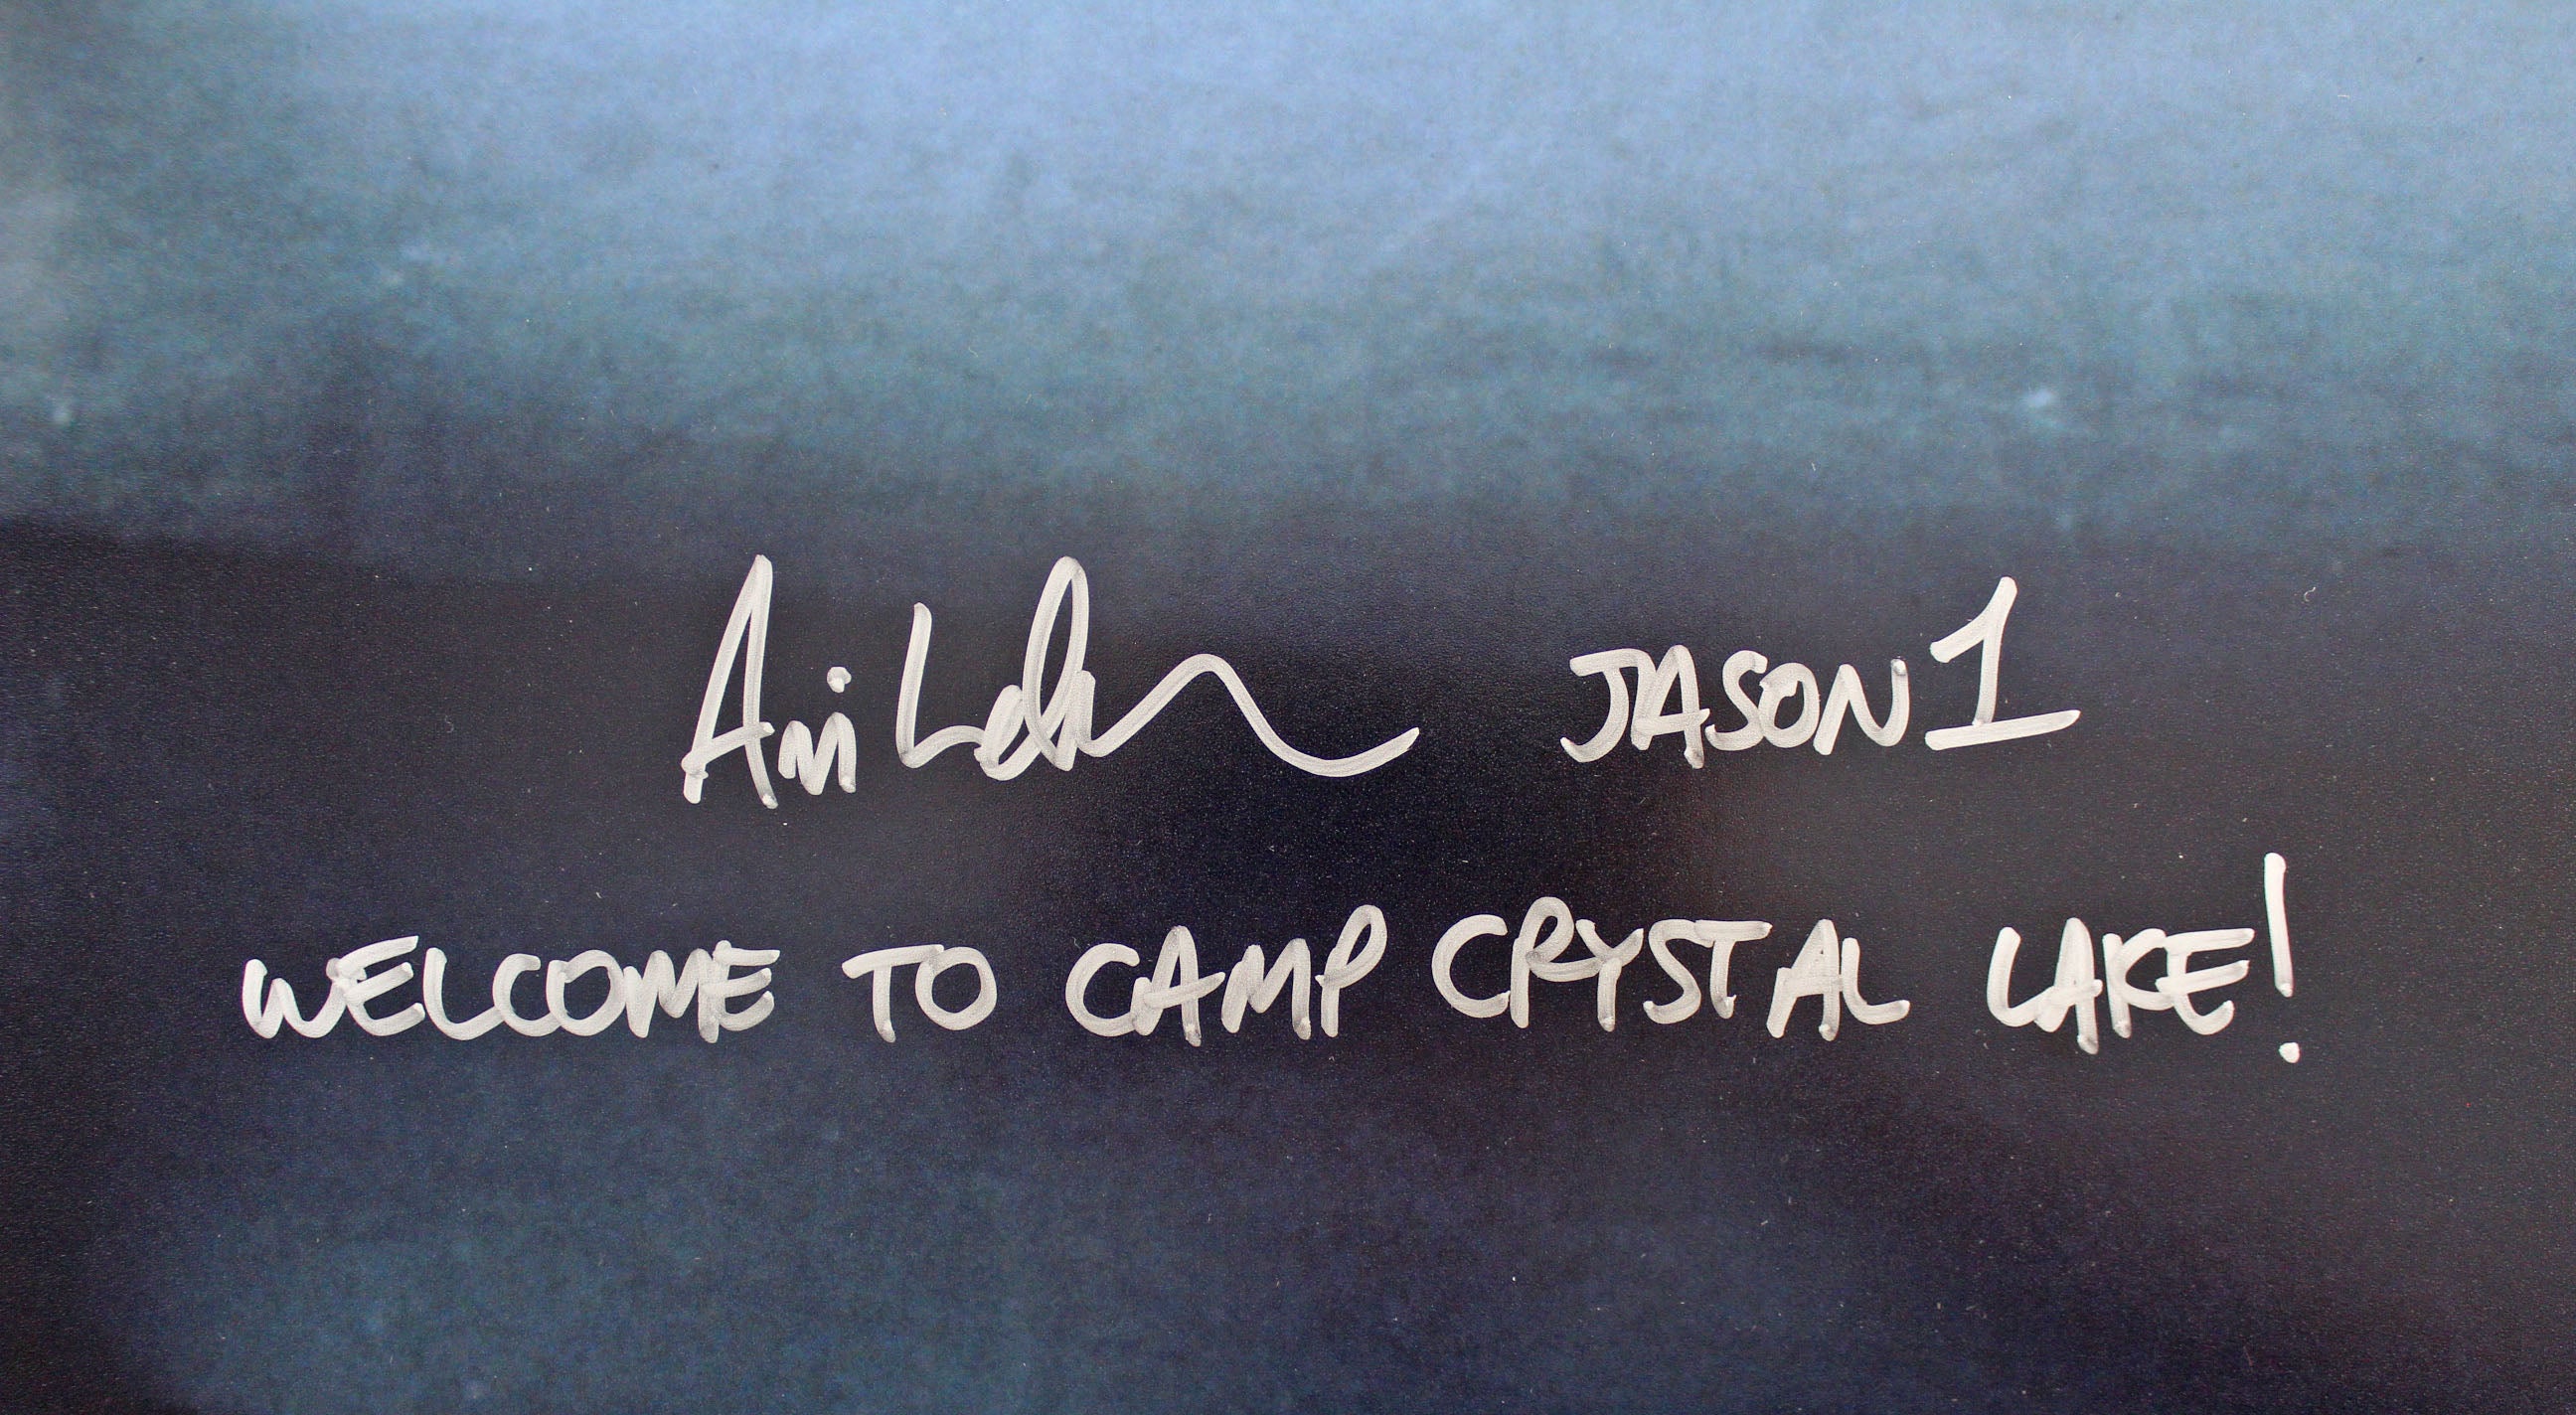 Ari Lehman JASON 1
WELCOME TO CAMP CRYSTAL LAKE!